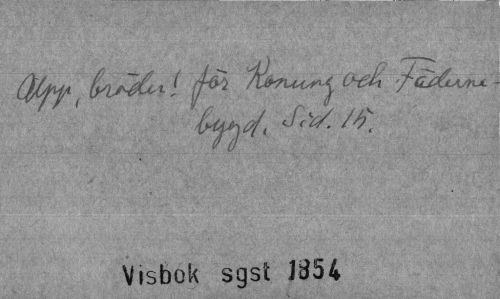 Upp, bröder! för Konung och Fäderne-
bygd. Sid. 15.
Visbok sgst 1854